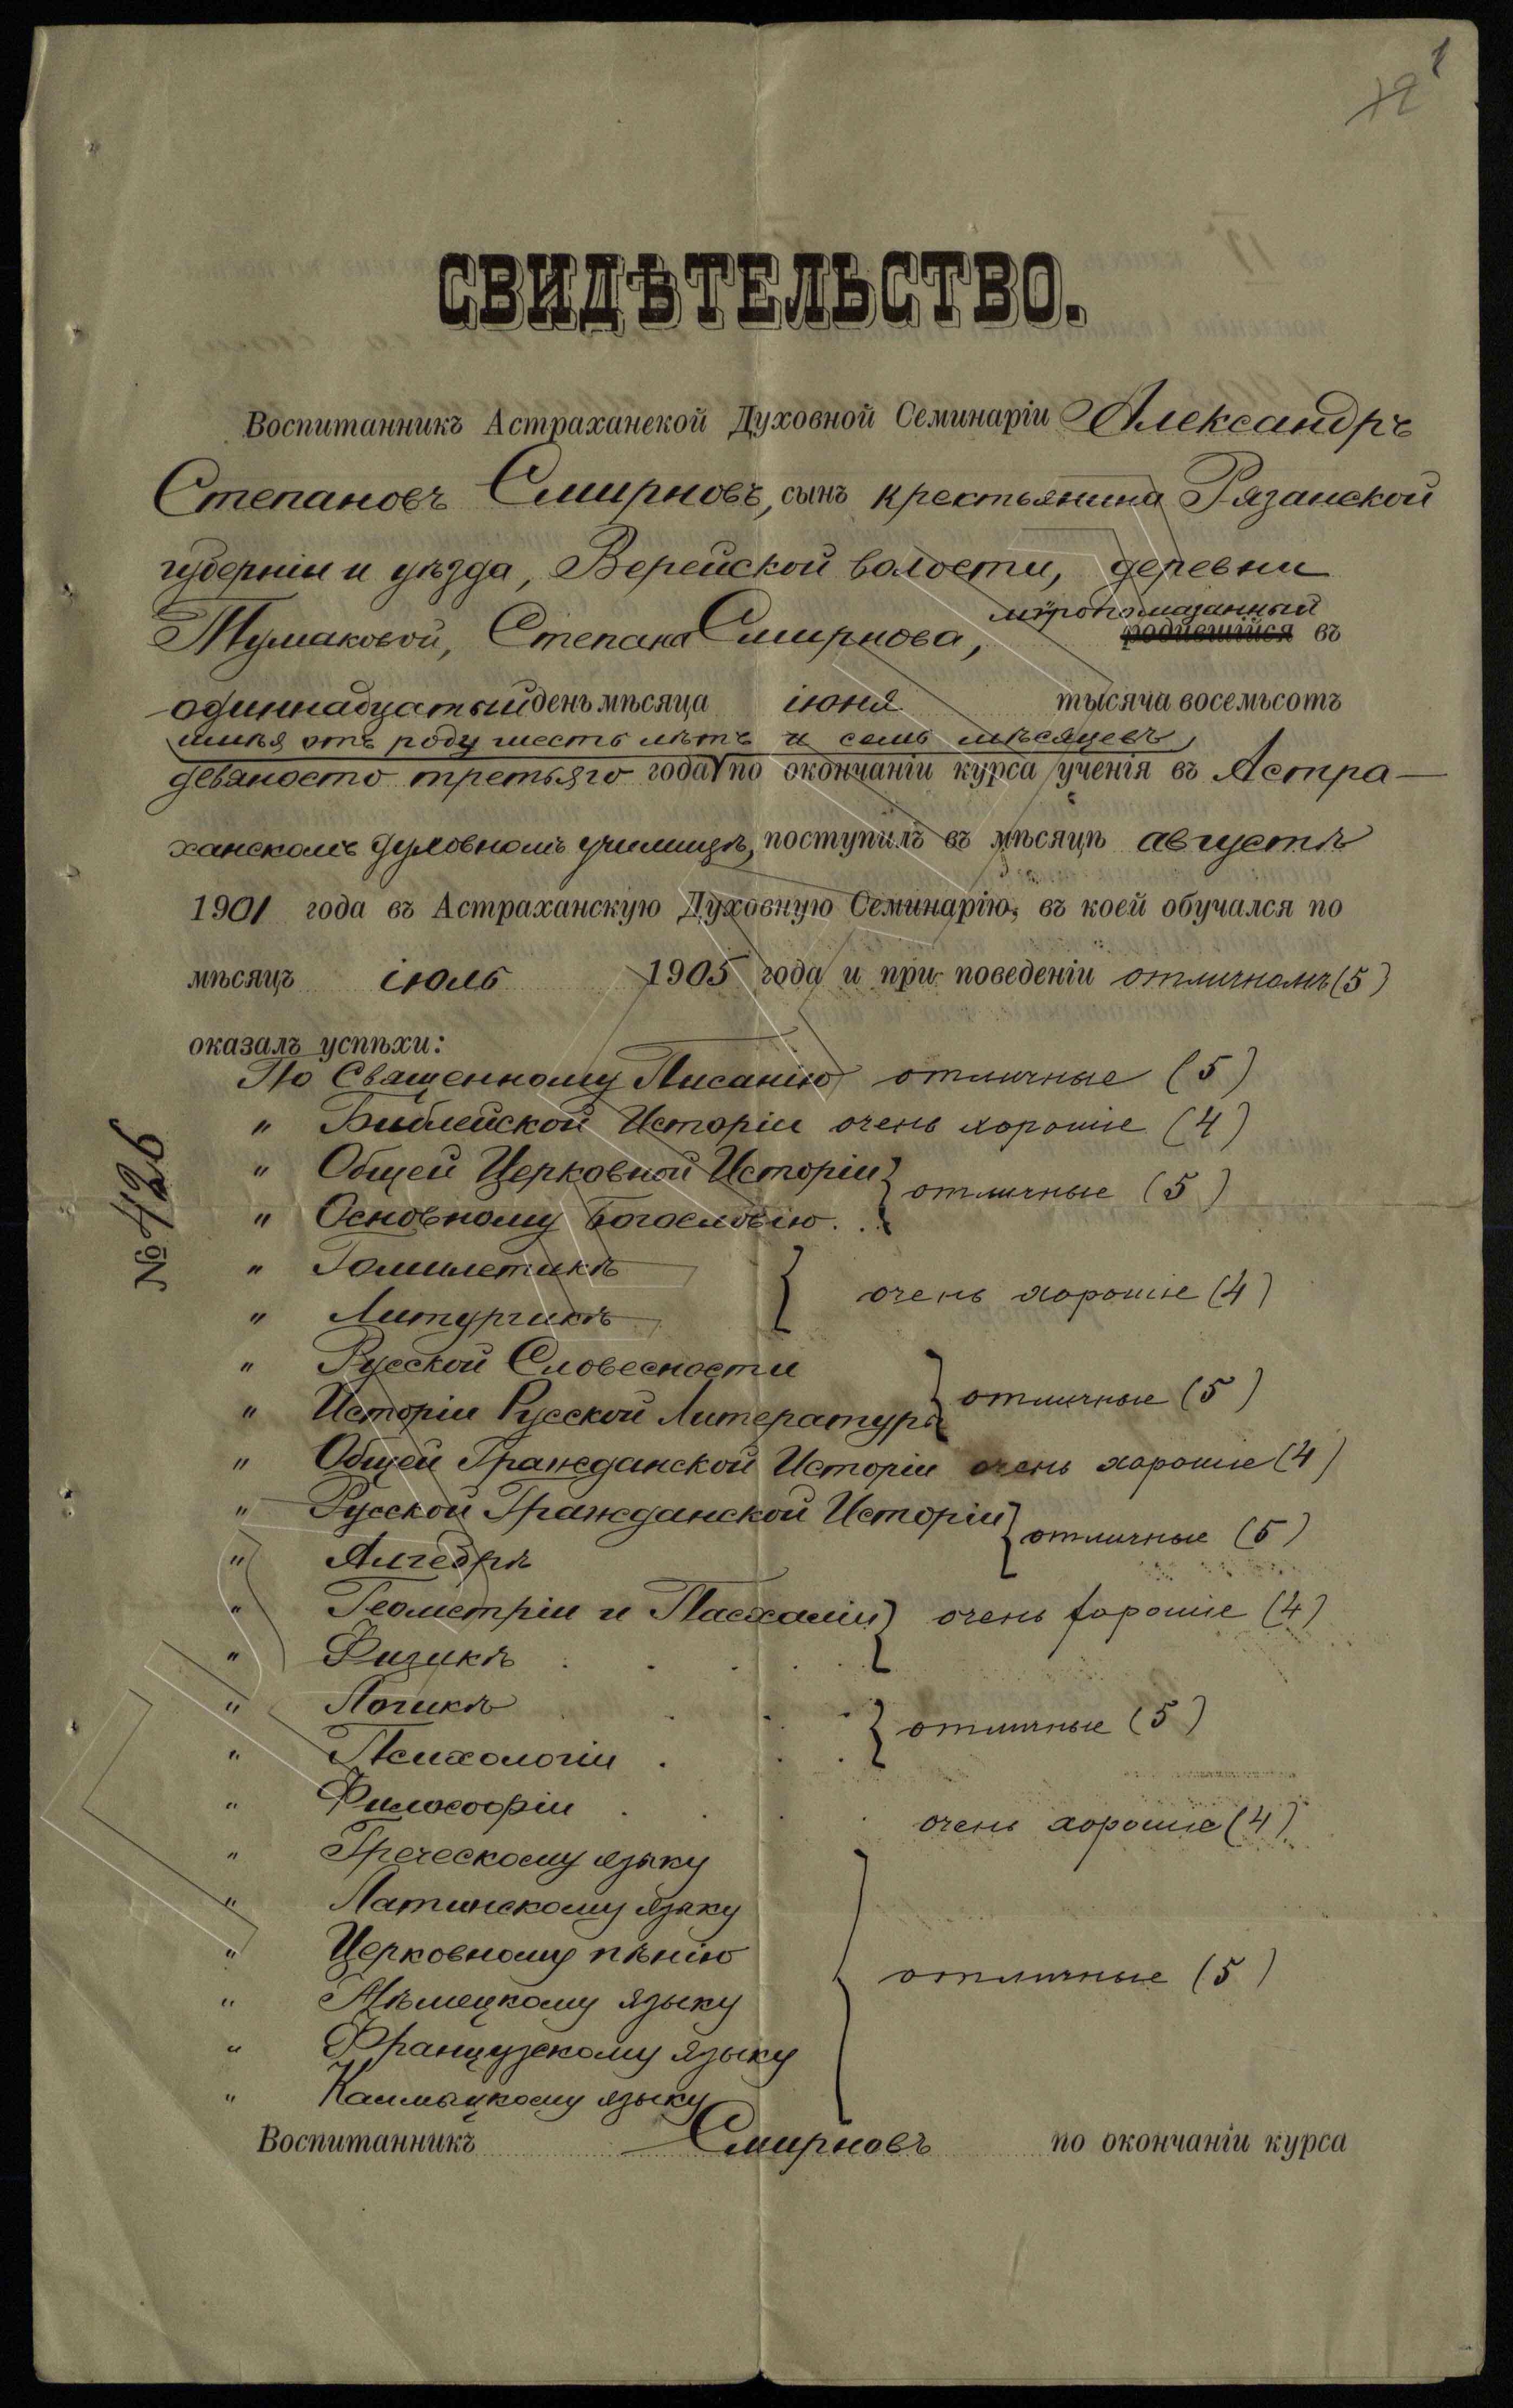 1
12
СВИДѢТЕЛЬСТВО.
Воспитанникъ Астраханской Духовной Семинаріи Александръ
Степановъ Смирновъ, сынъ крестьянина Рязанской
губерніи и уѣзда, Верейской волости, деревни
мѵропомазанный
Тумаковой, Степана Смирнова, родившійся въ
одиннадцатый день мѣсяца іюня тысяча восемьсотъ
имѣя отъ роду шесть лѣтъ и семь мѣсяцевъ,
девяносто третьяго года по окончаніи курса ученія въ Астра-
ханскомъ духовномъ училищѣ, поступилъ въ мѣсяцѣ августѣ
1901 года въ Астраханскую Духовную Семинарію, въ коей обучался по
мѣсяцъ іюль 1905 года и при поведеніи отличномъ (5)
оказалъ успѣхи:
По Священному Писанію отличные (5)
„ Библейской Исторіи очень хорошіе (4)
„ Общей Церковной Исторіи } отличные (5)
„ Основному Богословію . .
„ Гомилетикѣ
„ Литургикѣ } очень хорошіе (4)
„ Русской Словесности
„ Исторіи Русской Литературы } отличные (5)
„ Общей Гражданской Исторіи очень хорошіе (4)
„ Русской Гражданской Исторіи } отличные (5)
„ Алгебрѣ
„ Геометріи и Пасхаліи } очень хорошіе (4)
„ Физикѣ . . . . .
„ Логикѣ . . . } отличные (5)
„ Психологіи . . .
„ Философіи . . . . очень хорошіе (4)
„ Греческому языку
„ Латинскому языку
„ Церковному пѣнію } отличные (5)
„ Нѣмецкому языку
„ Французскому языку
„ Калмыцкому языку
Воспитанникъ Смирновъ по окончаніи курса
№ 426